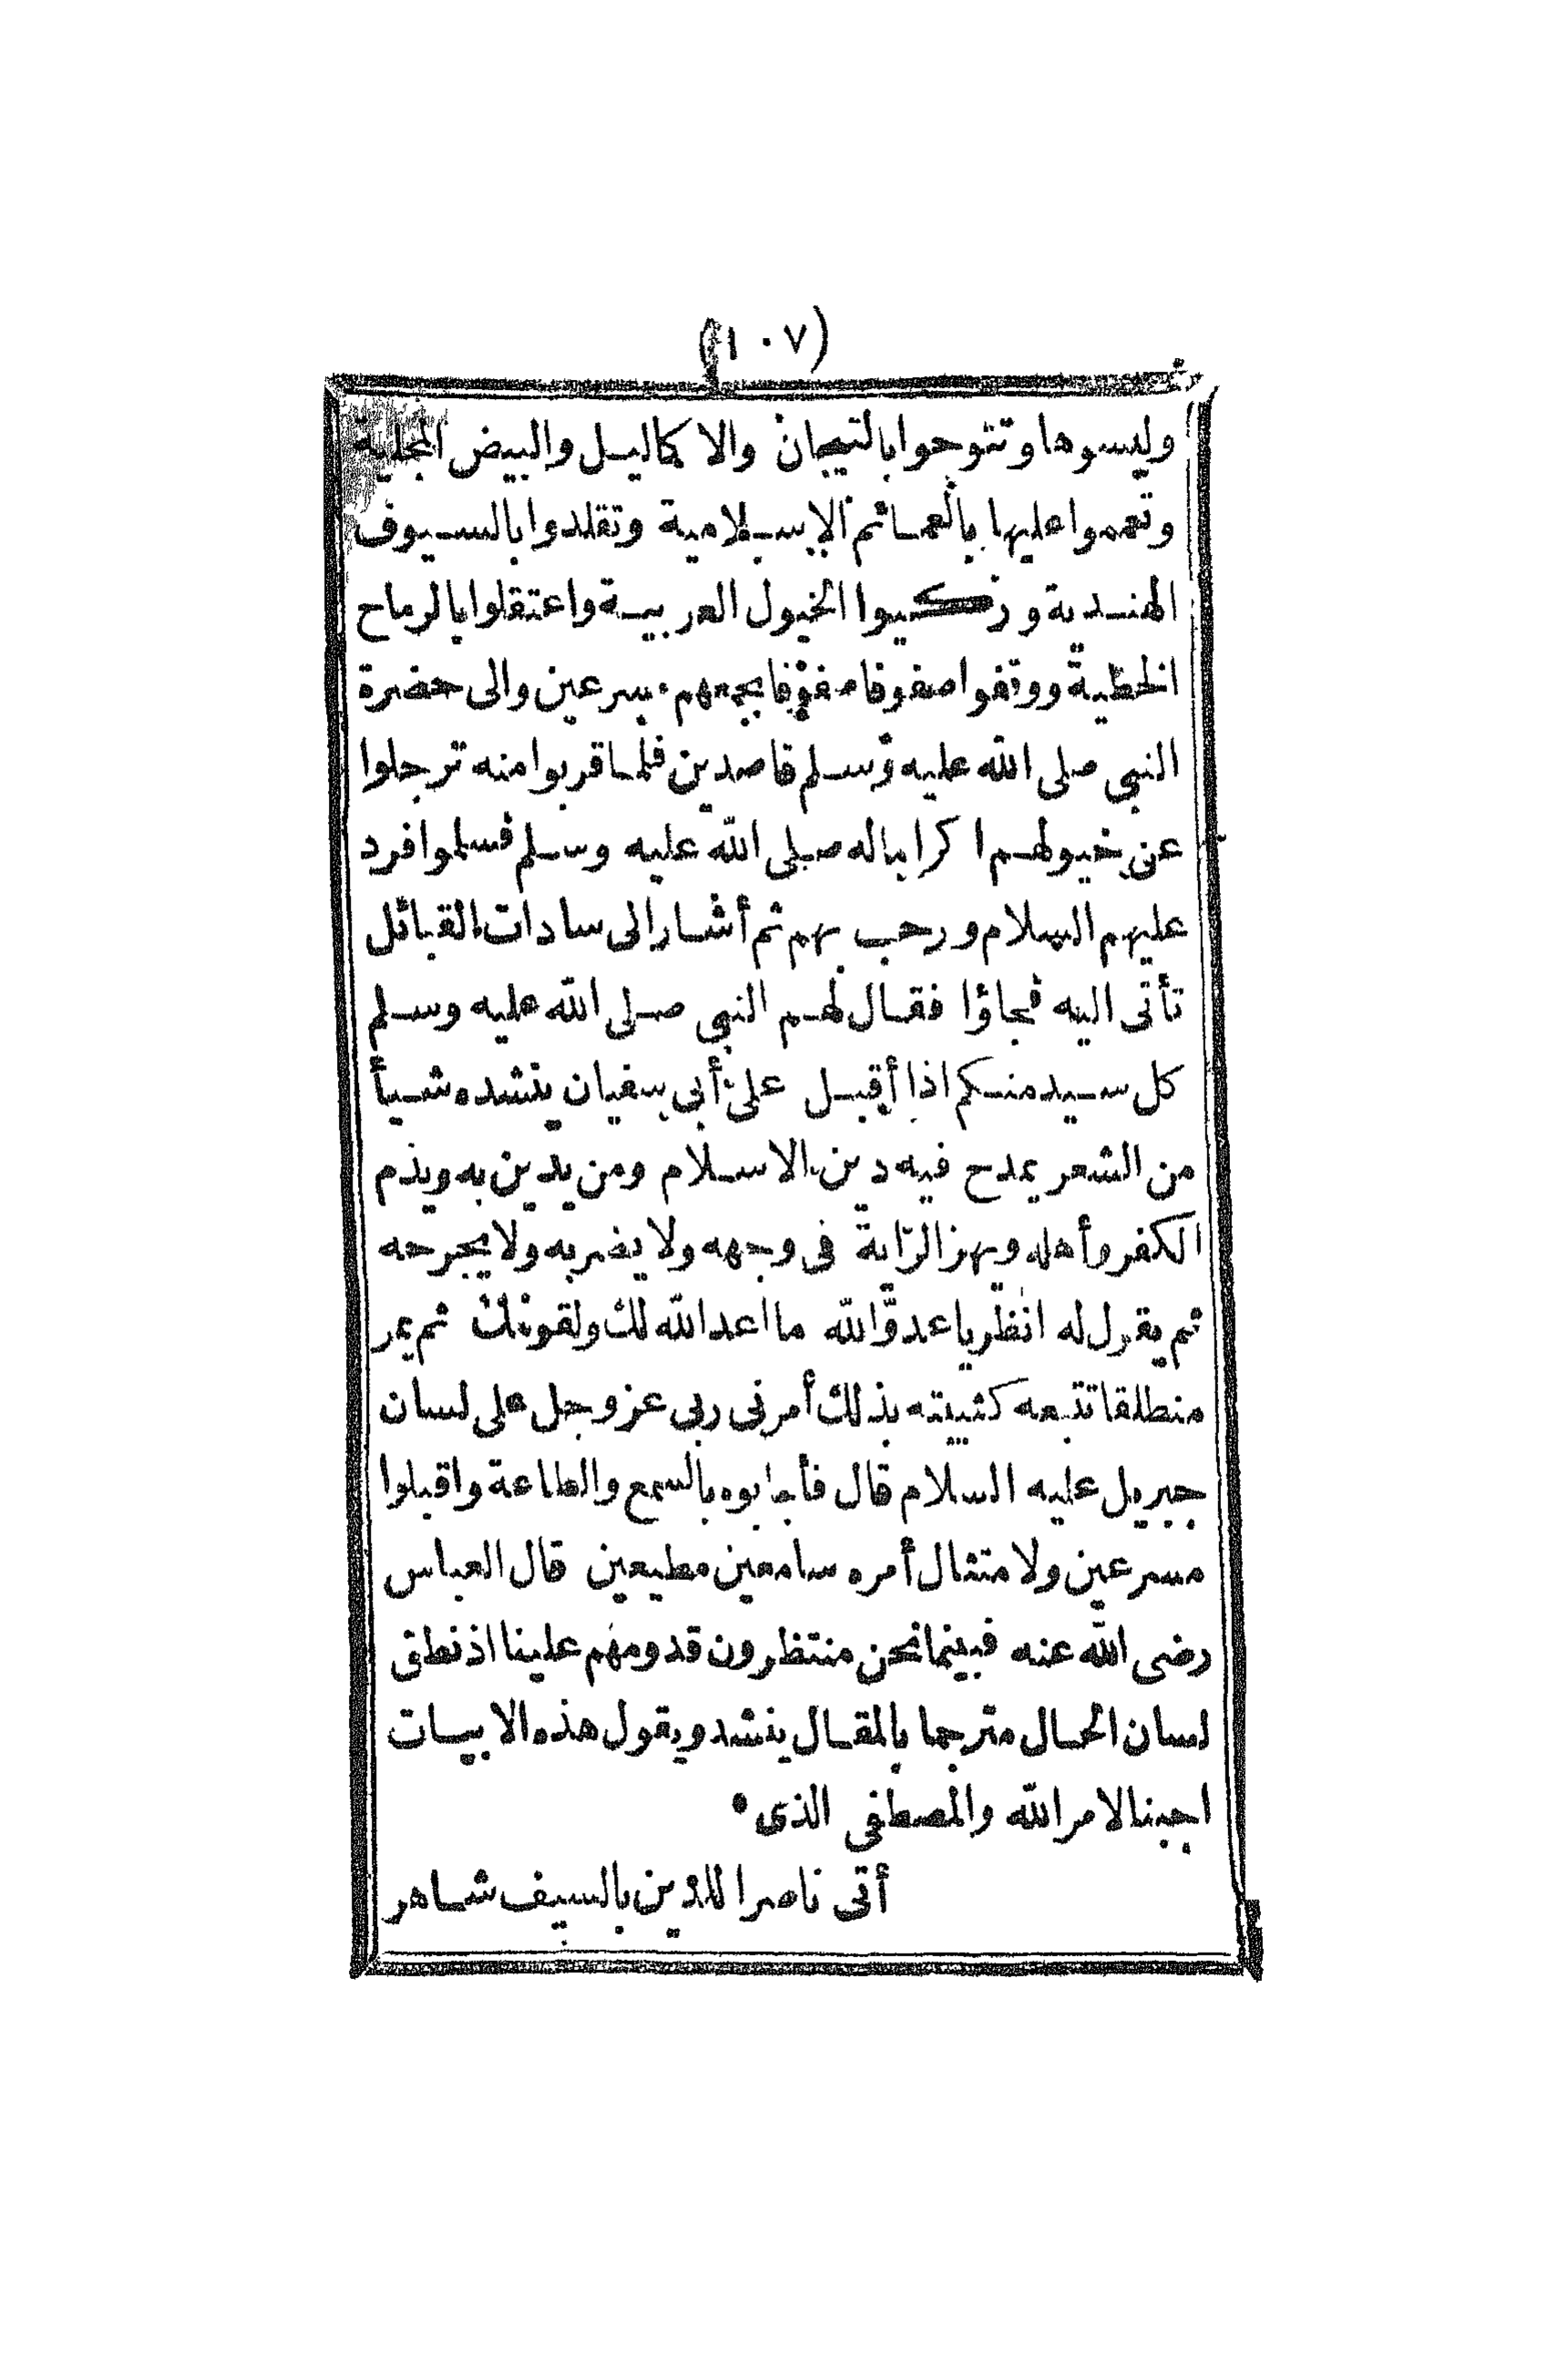 (١٠٧)
ولبسوها وتتوجوا بالتيجان والاكاليل والبيض المجلية
وتعمموا عليها بالعمائم الاسلامية وتقلدوا بالسيوف
الهندية وركبوا الخيول العربية واعتقلوا بالرماح
الخطية ووقفوا صفوفا صفوفا بجمعهم مسرعين والى حضرة
النبى صلى الله عليه وسلم قاصدين فلما قربوا منه ترجلوا
عن خيولهم اكراما له صلى الله عليه وسلم فسلموا فرد
عليهم السلام ورحب بهم ثم أشار الى سادات القبائل
تأتى اليه فجاؤا فقال لهم النبى صلى الله عليه وسلم
كل سيد منكم اذا أقبل على أبى سفيان ينشده شيأ
من الشعر يمدح فيه دين الاسلام ومن يدين به ويذم
الكفر وأهله ويهز الراية فى وجهه ولا يضربه ولا يجرحه
ثم يقول له انظر يا عدو الله ما اعد الله لك ولقومك ثم يمر
منطلقا تتبعه كتيبته بذلك أمرنى ربى عز وجل على لسان
جبريل عليه السلام قال فأجابوه بالسمع والطاعة واقبلوا
مسرعين ولامتثال أمره سامعين مطيعين قال العباس
رضى الله عنه فبينما نحن منتظرون قدومهم علينا اذ نطق
لسان الحال مترجما بالمقال ينشد ويقول هذه الابيات
اجبنا لامر الله والمصطفى الذى •
أتى ناصرا للدين بالسيف شاهر